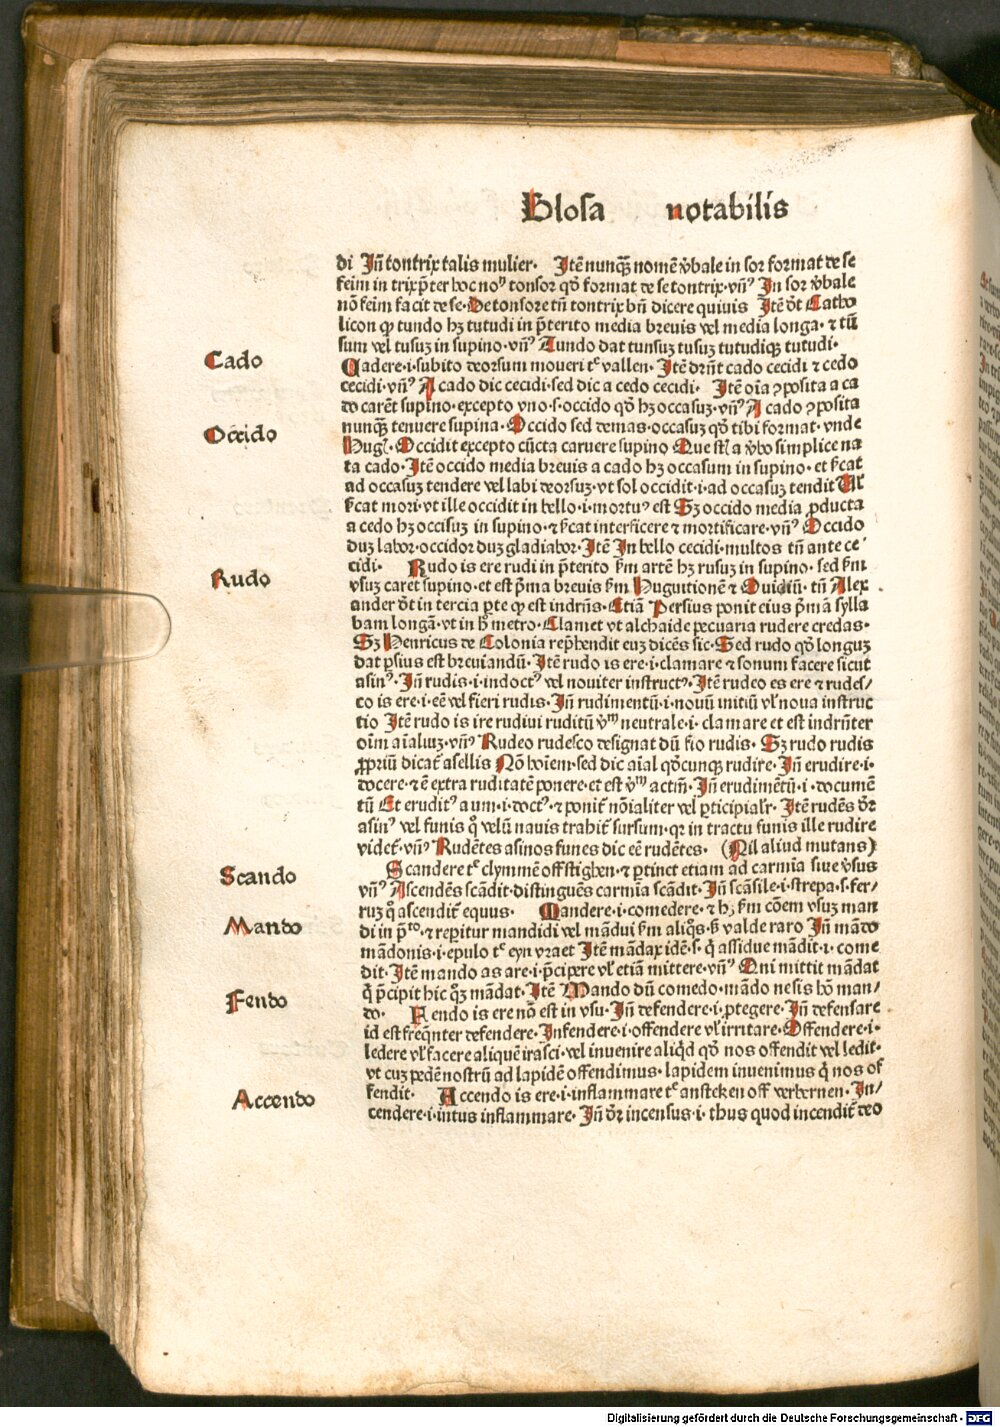 Glosa notabilis
di Iñ tontrix talis mulier· Itē nunqȝ nomē v̓bale in sor format de se
feim in trix p̄ter hoc noᵐ tonsor qd̓ format de se tontrix·vñ⁹ In sor v̓bale
nō feim facit de se·De tonsore tn̄ tontrix bn̄ dicere quiuis Itē dr̄t Catho
licon ꝙ tundo hȝ tutudi in p̄terito media breuis vel media longa·⁊ tū
sum vel tusuȝ in supino·vñ⁹ Tundo dat tunsuȝ tusuȝ tutudiqȝ tutudi·
Cado
Cadere·i·subito deorsum moueri tꝰ vallen· Itē drn̄t cado cecidi ⁊ cedo
cecidi·vñ⁹ A cado dic cecidi·sed dic a cedo cecidi· Itē oīa ꝯposita a ca
do carēt supino·excepto vno·s·occido qd̓ hȝ occasuȝ·vñ⁹ A cado ꝯposita
Occido
nunqȝ tenuere supina·Occido sed demas·occasuȝ qd̓ tibi format·vnde
Hugꝭ·Occidit excepto cūcta caruere supino Que sꝉ a v̓bo simplice na
ta cado·Itē occido media breuis a cado hȝ occasum in supino·et s̓cat
ad occasuȝ tendere vel labi deorsuȝ·vt sol occidit·i·ad occasuȝ tendit Uꝉ
s̓cat mori·vt ille occidit in bello·i·mortu⁹ est Sȝ occido media ꝓducta
a cedo hȝ occisuȝ in supino·⁊ s̓cat interficere ⁊ mortificare·vñ⁹ Occido
duȝ labor·occidor duȝ gladiabor·Itē In bello cecidi·multos tn̄ ante ce
Rudo
cidi· Rudo is ere rudi in p̄terito s̓m artē hȝ rusuȝ in supino·sed s̓m
vsuȝ caret supino·et est p̄ma breuis s̓m Huguitionē ⁊ Ouidiū·tn̄ Alex
ander dr̄t in tercia ꝑte ꝙ est indrn̄s·Etiā Persius ponit eius p̄mā sylla
bam longā·vt in h̓ metro·Clamet vt alchaide pecuaria rudere credas·
Sȝ Henricus de Colonia rep̄hendit euȝ dicēs sic·Sed rudo qd̓ longuȝ
dat ꝑsius est breuiandū·Itē rudo is ere·i·clamare ⁊ sonum facere sicut
asin⁹·Iñ rudis·i·indoct⁹ vel nouiter instruct⁹·Itē rudeo es ere ⁊ rudes/
co is ere·i·eē vel fieri rudis·Iñ rudimentū·i·nouū initiū vꝉ noua instruc
tio Itē rudo is ire rudiui ruditū v̓ᵐ neutrale·i·clamare et est indrn̄ter
oīm aīaliuȝ·vñ⁹ Rudeo rudesco designat dū fio rudis·Sȝ rudo rudis
ꝓpriū dicat̓ asellis Nō hoiem·sed dic aīal qd̓cunqȝ rudire·Iñ erudire·i·
docere·⁊ ē extra ruditatē ponere·et est v̓ᵐ actm̄·Iñ erudimētū·i·documē
tū Et erudit⁹ a um·i·doct⁹·⁊ ponit̓ nōialiter vel ꝑticipialr̓·Itē rudēs dr̄
asin⁹ vel funis q̓ velū nauis trahit̓ sursum·qꝛ in tractu funis ille rudire
videt̓·vñ⁹ Rudētes asinos funes dic eē rudētes· (Nil aliud mutans)
Scando
Scandere tꝰ clymmē off stighen·⁊ ꝑtinet etiam ad carmīa siue v̓sus
vñ⁹ Ascendēs scādit·distinguēs carmīa scādit·Iñ scāsile·i·strepa·s·fer/
ruȝ q̓ ascendit̓ equus· Mandere·i·comedere·⁊ hȝ s̓m cōem vsuȝ man
Mando
di in p̄ᵗᵒ·⁊ reꝑitur mandidi vel mādui s̓m aliq̓s·s̓ valde raro Iñ mādo
mādonis·i·epulo tꝰ eyn vraet Itē mādax idē·s·q̓ assidue mādit·i·come
dit·Itē mando as are·i·p̄cipere vꝉ etiā mittere·vñ⁹ Qui mittit mādat
q̓ p̄cipit hic qȝ mādat·Itē Mando dū comedo·mādo nesis hō man/
Fendo
do· Fendo is ere nō est in vsu·Iñ defendere·i·ꝓtegere·Iñ defensare
id est freq̄nter defendere·Infendere·i·offendere vꝉ irritare·Offendere·i·
ledere vꝉ facere aliquē irasci·vel inuenire aliqd̓ qd̓ nos offendit vel ledit·
vt cuȝ pedē nostrū ad lapidē offendimus·lapidem inuenimus q̓ nos of
Accendo
fendit· Accendo is ere·i·inflammare tꝰ anstcken off verbernen·In/
cendere·i·intus inflammare·Iñ dr̄ incensus·i·thus quod incendit̓ deo
Digitalisierung gefördert durch die Deutsche Forschungsgemeinschaft - DFG